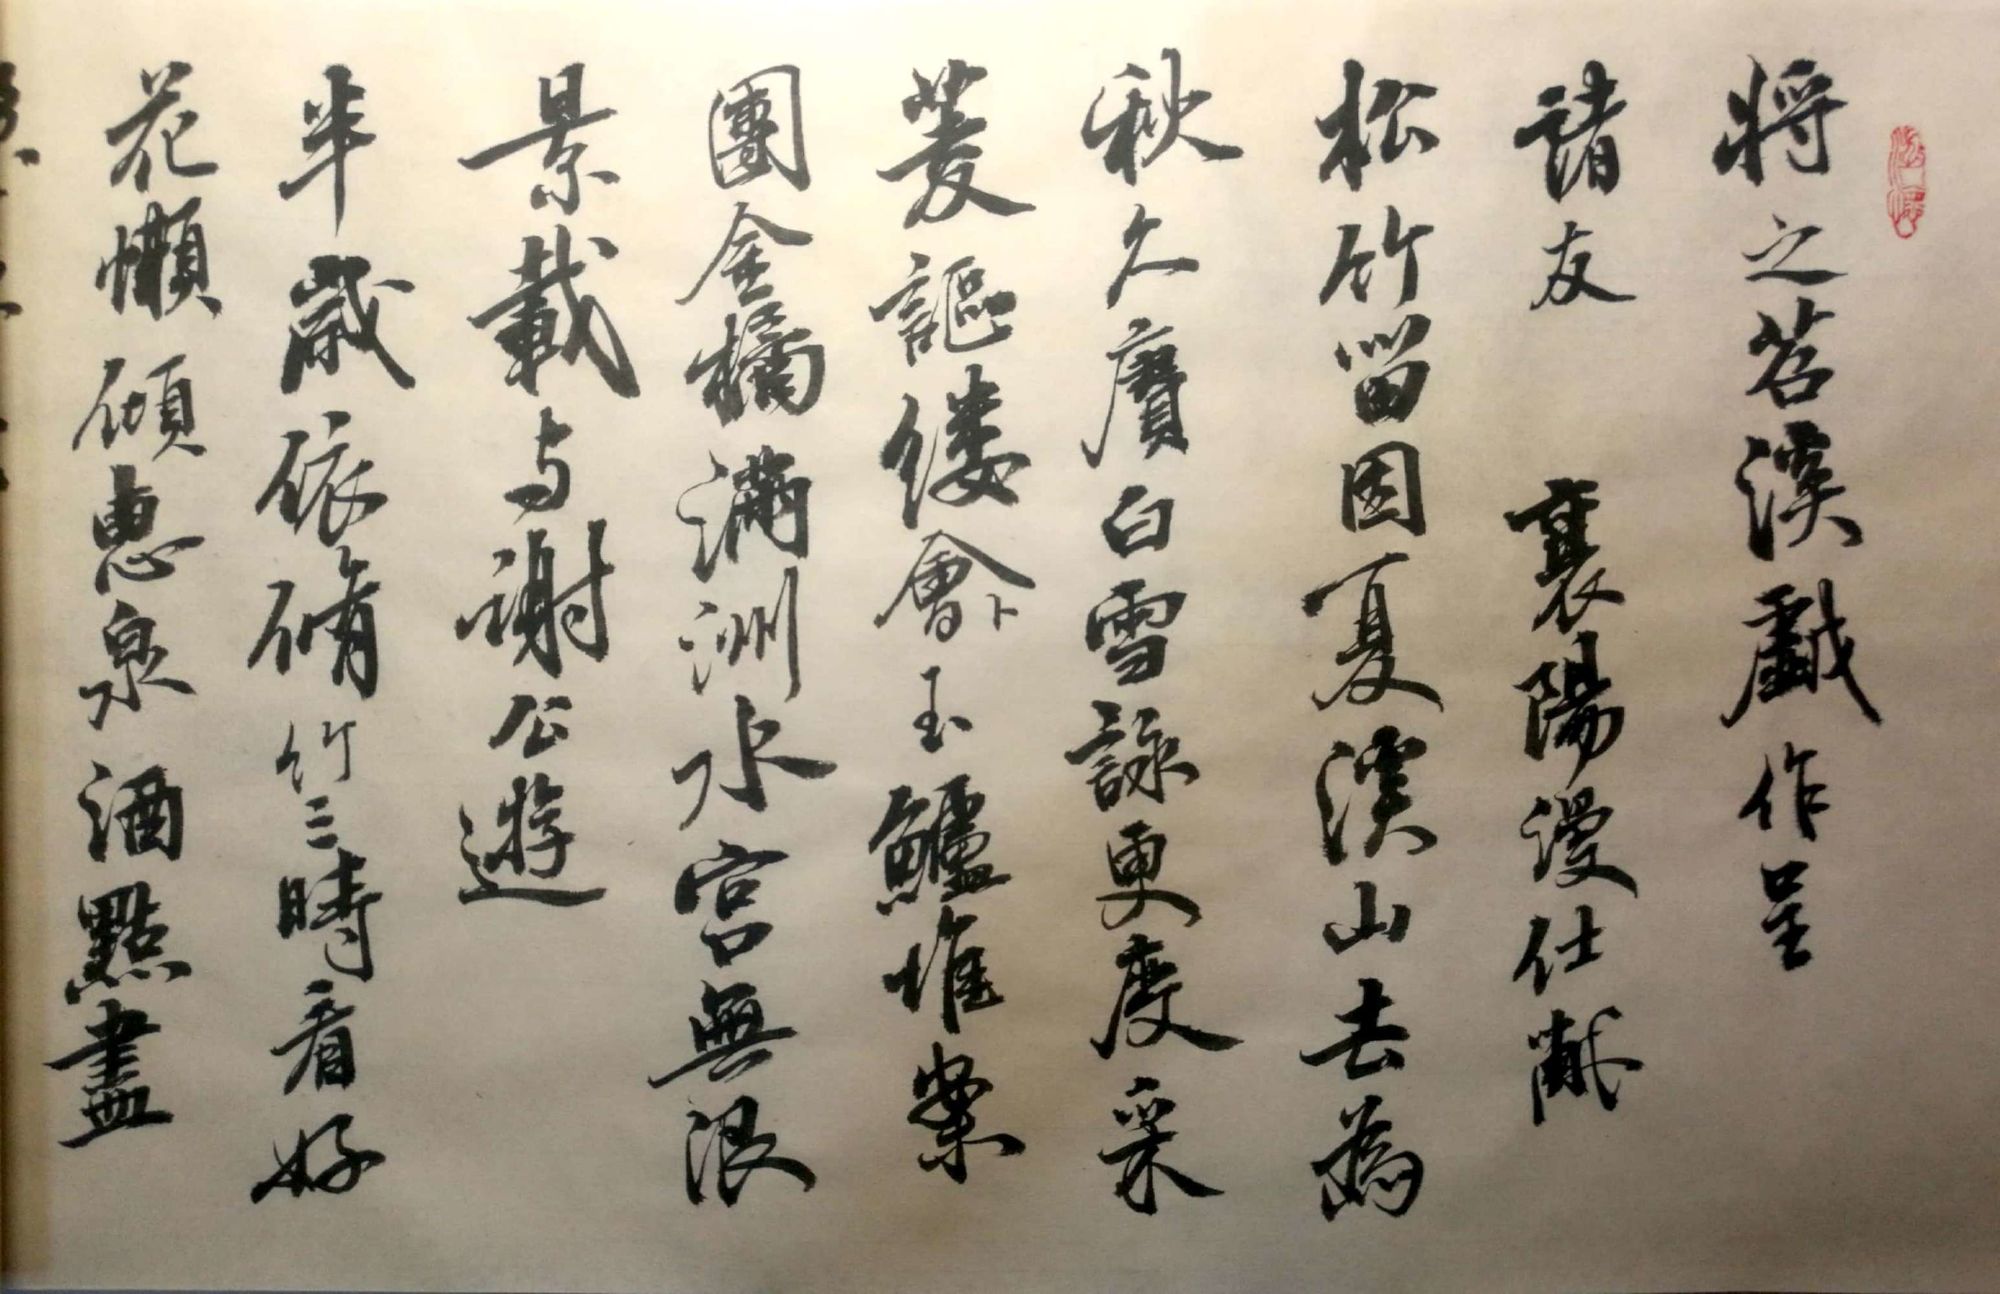 将之苕溪戲作呈
諸友 襄陽漫仕黻
松竹留因夏溪山去為
秋久賡白雪詠更度采
菱謳縷會卜玉鱸堆案
團金橘滿洲水宫無限
景載与謝公遊
半歳依脩竹三時看好
花懶傾惠泉酒點盡